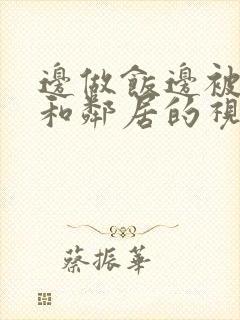 邊做飯邊被
和鄰居的視
蔡振華